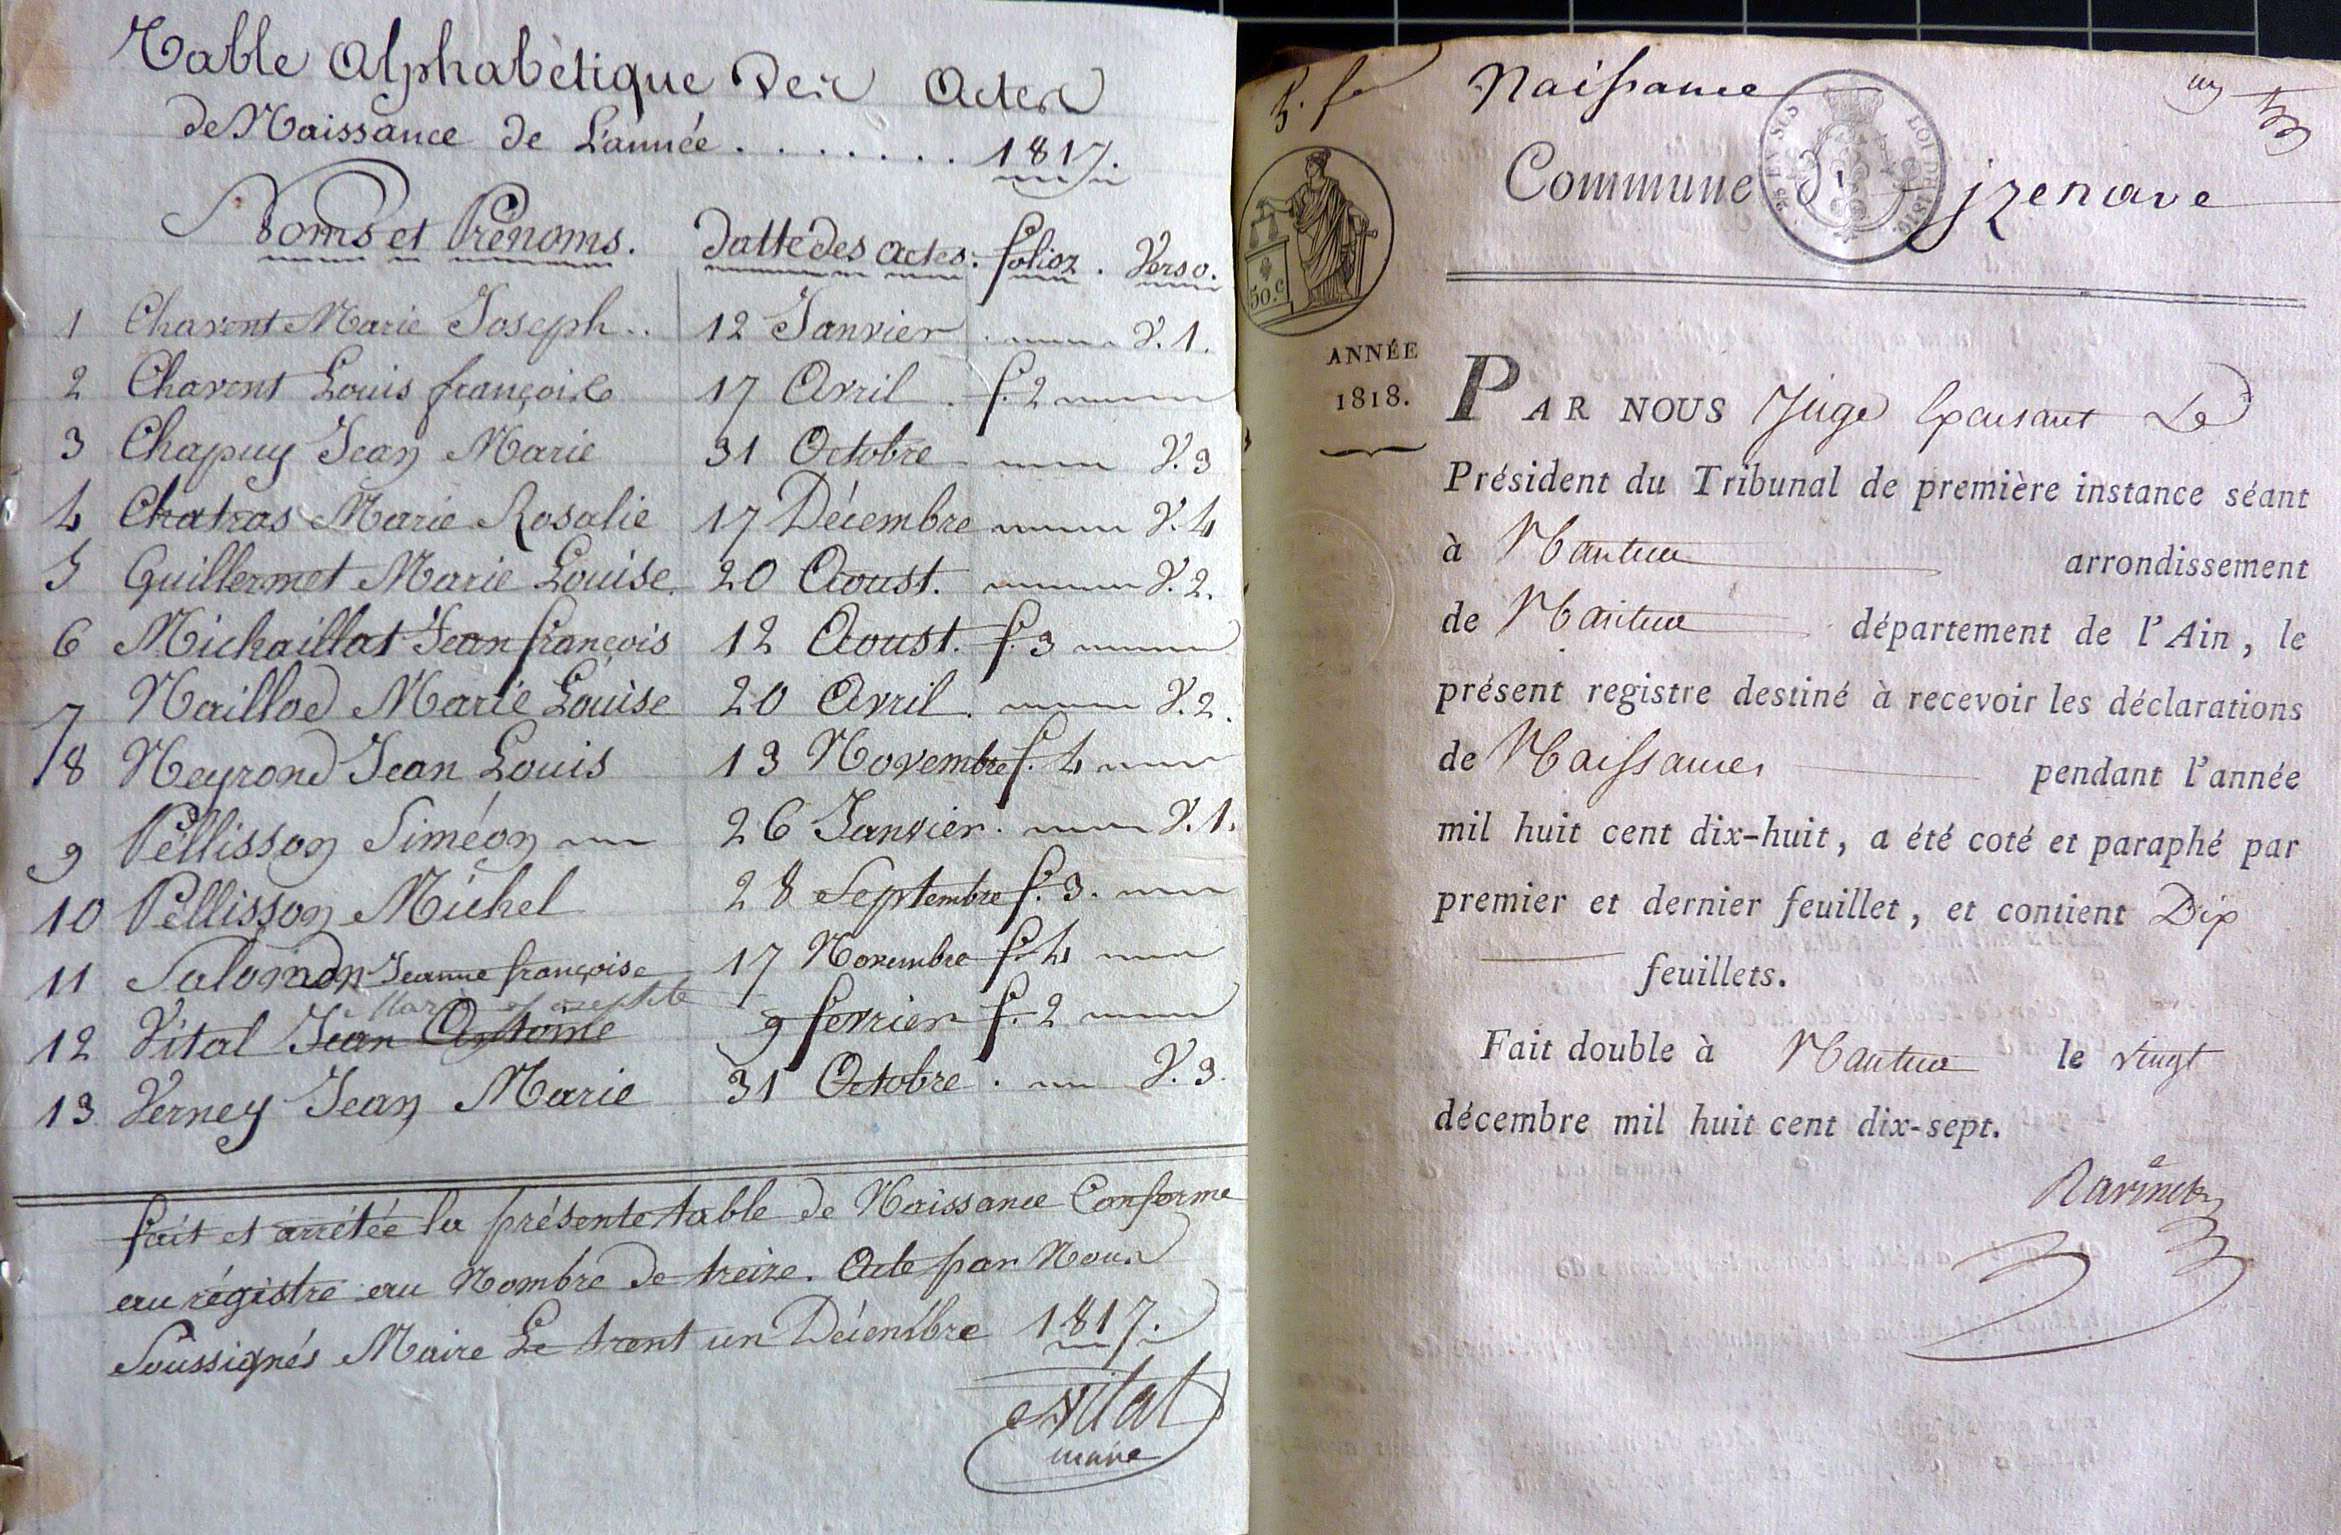 Table Alphabètique des Actes
de Naissance de L'année . . . . . . . 1817.
Noms et Prénoms. datte des actes. folioz. Verso.
1 Charent Marie Joseph.. 12 Janvier V. 1.
2 Charent Louis françoise 17 Avril. f. 2
3 Chapuy Jean Marie 31 Octobre V. 3
4 Chatras Marie Rosalie 17 Décembre V. 4
5 Guillermet Marie Louise. 20 Aoust. V. 2.
6 Michaillat Jean françois 12 Aoust. f. 3
7 Naillod Marie Louise 20 Avril. V. 2.
8 Neyrond Jean Louis 13 Novembre f. 4
9 Pellisson Siméon 26 Janvier. V. 1.
10 Pellisson Michel 28 Septembre f. 3.
11 Salomon Jeanne françoise 17 Novembre f. 4
Marie Josephte
12 Vital Jean Antoine 9 fevrier f. 2
13 Verney Jean Marie 31 Octobre. V. 3.
fait et arrétée la présente table de Naissance Conforme
au régistre au Nombre de treize. Acte par Nous
Soussignés Maire Le trent un Décembre 1817.
Vital
maire
Naissance
Commune d' izenave
50.c
LOI DE 1816.
ANNÉE
1818.
PAR NOUS Juge Exerçant Le
Président du Tribunal de première instance séant
à Nantua arrondissement
de Nantua département de l'Ain, le
présent registre destiné à recevoir les déclarations
de Naissances pendant l'année
mil huit cent dix-huit, a été coté et paraphé par
premier et dernier feuillet, et contient Dix
feuillets.
Fait double à Nantua le vingt
décembre mil huit cent dix-sept.